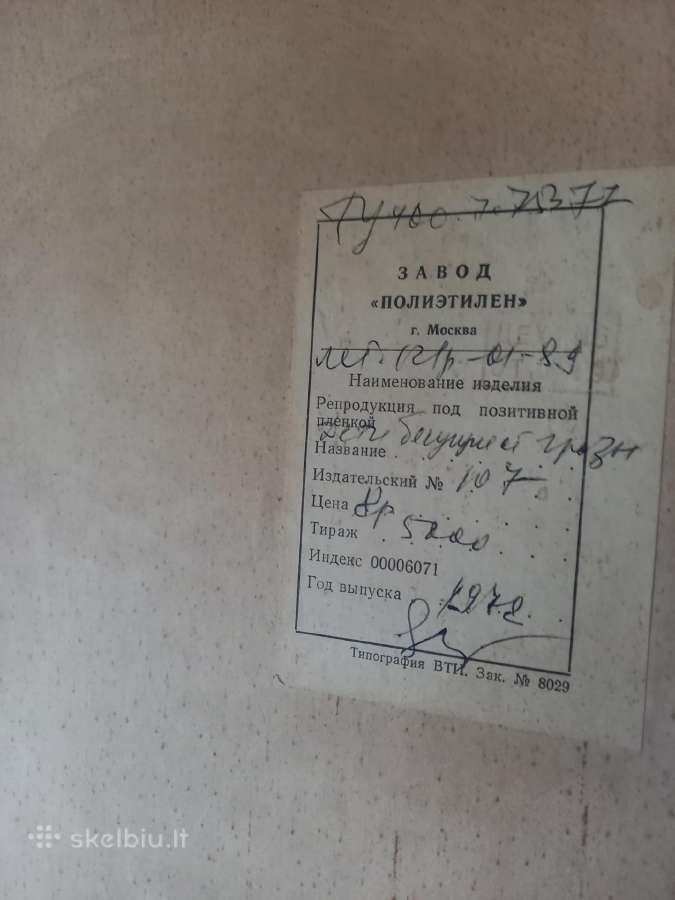 ТУ 400.7.753 77
ЗАВОД
«ПОЛИЭТИЛЕН»
г. Москва
Наименование изделия
Репродукция под позитивной
пленкой
Название Дети бегущие от грозы
Издательский № 107
Цена 8р
Тираж 5000
Индекс 00006071
Год выпуска 1978
Типография ВТИ. Зак. № 8029
skelbiu.lt